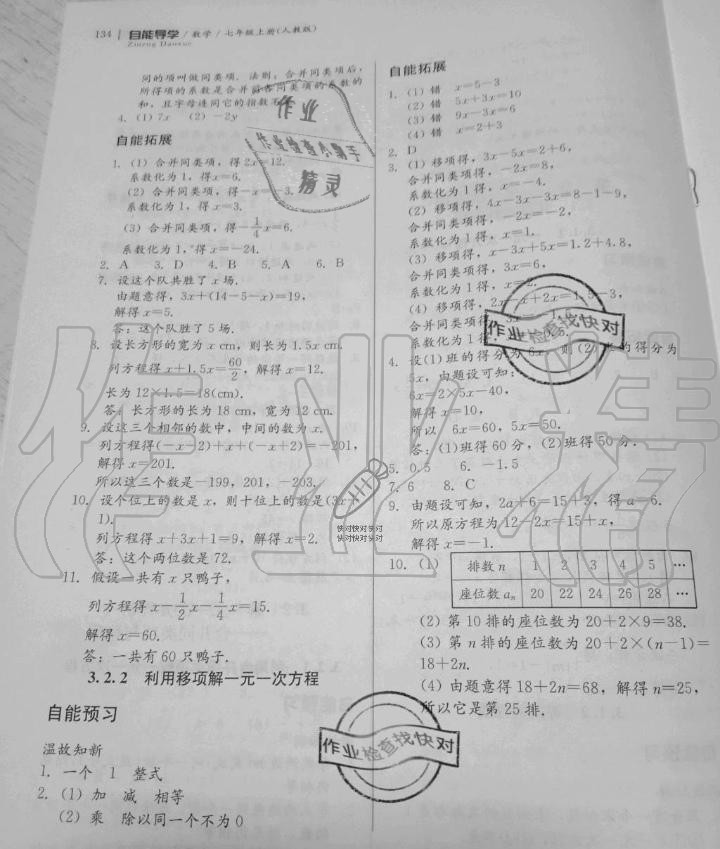 134 自能导学/数学/七年级上册(人教版)
Zineng Daoxue
同的项叫做同类项. 法则:合并同类项后,
所得项的系数是合并前各同类项的系数的
和,且字母连同它的指数不
4. (1) 7x (2) -2y
自能拓展
1. (1) 合并同类项,得 2x=12.
系数化为 1,得 x=6.
(2) 合并同类项,得-x=-3.
系数化为 1,得 x=3.
(3) 合并同类项,得-1/4x=6.
系数化为 1,得 x=-24.
2. A 3. D 4. B 5. A 6. B
7. 设这个队共胜了 x 场.
由题意得,3x+(14-5-x)=19,
解得 x=5.
答:这个队胜了 5 场.
8. 设长方形的宽为 x cm,则长为 1.5x cm.
列方程得 x+1.5x=60/2,解得 x=12.
长为 12×1.5=18(cm).
答:长方形的长为 18 cm,宽为 12 cm.
9. 设这三个相邻的数中,中间的数为 x.
列方程得(-x-2)+x+(-x+2)=-201,
解得 x=201.
所以这三个数是-199,201,-203.
10. 设个位上的数是 x,则十位上的数是(3x+
1).
列方程得 x+3x+1=9,解得 x=2.
答:这个两位数是 72.
11. 假设一共有 x 只鸭子,
列方程得 x-1/2x-1/4x=15.
解得 x=60.
答:一共有 60 只鸭子.
3.2.2 利用移项解一元一次方程
自能预习
温故知新
1. 一个 1 整式
2. (1) 加 减 相等
(2) 乘 除以同一个不为 0
自能拓展
1. (1) 错 x=5-3
(2) 错 5x+3x=10
(3) 错 9x-3x=6
(4) 错 x=2+3
2. D
3. (1) 移项得,3x-5x=2+6,
合并同类项得,-2x=8,
系数化为 1 得,x=-4.
(2) 移项得,4x-3x-3x=8-1-9,
合并同类项得,-2x=-2,
系数化为 1 得,x=1.
(3) 移项得,x-3x+5x=1.2+4.8,
合并同类项得,3x=6,
系数化为 1 得,x=2.
(4) 移项得,2x-x+2x=1.5-3,
合并同类项得,
系数化为 1
4. 设(1)班的得分为 6x,则(2)班的得分为
5x,由题设可知:
6x=2×5x-40,
解得 x=10,
所以 6x=60,5x=50.
答:(1)班得 60 分,(2)班得 50 分.
5. 0.5 6. -1.5
7. 6 8. C
9. 由题设可知,2a+6=15+3,得 a=6.
所以原方程为 12-2x=15+x,
解得 x=-1.
10. (1) 排数 n 1 2 3 4 5 …
座位数 aₙ 20 22 24 26 28 …
(2) 第 10 排的座位数为 20+2×9=38.
(3) 第 n 排的座位数为 20+2×(n-1)=
18+2n.
(4) 由题意得 18+2n=68,解得 n=25,
所以它是第 25 排.
作业
作业检查小助手
精灵
作业检查找快对
作业检查找快对
快对快对快对
快对快对快对
作业精灵